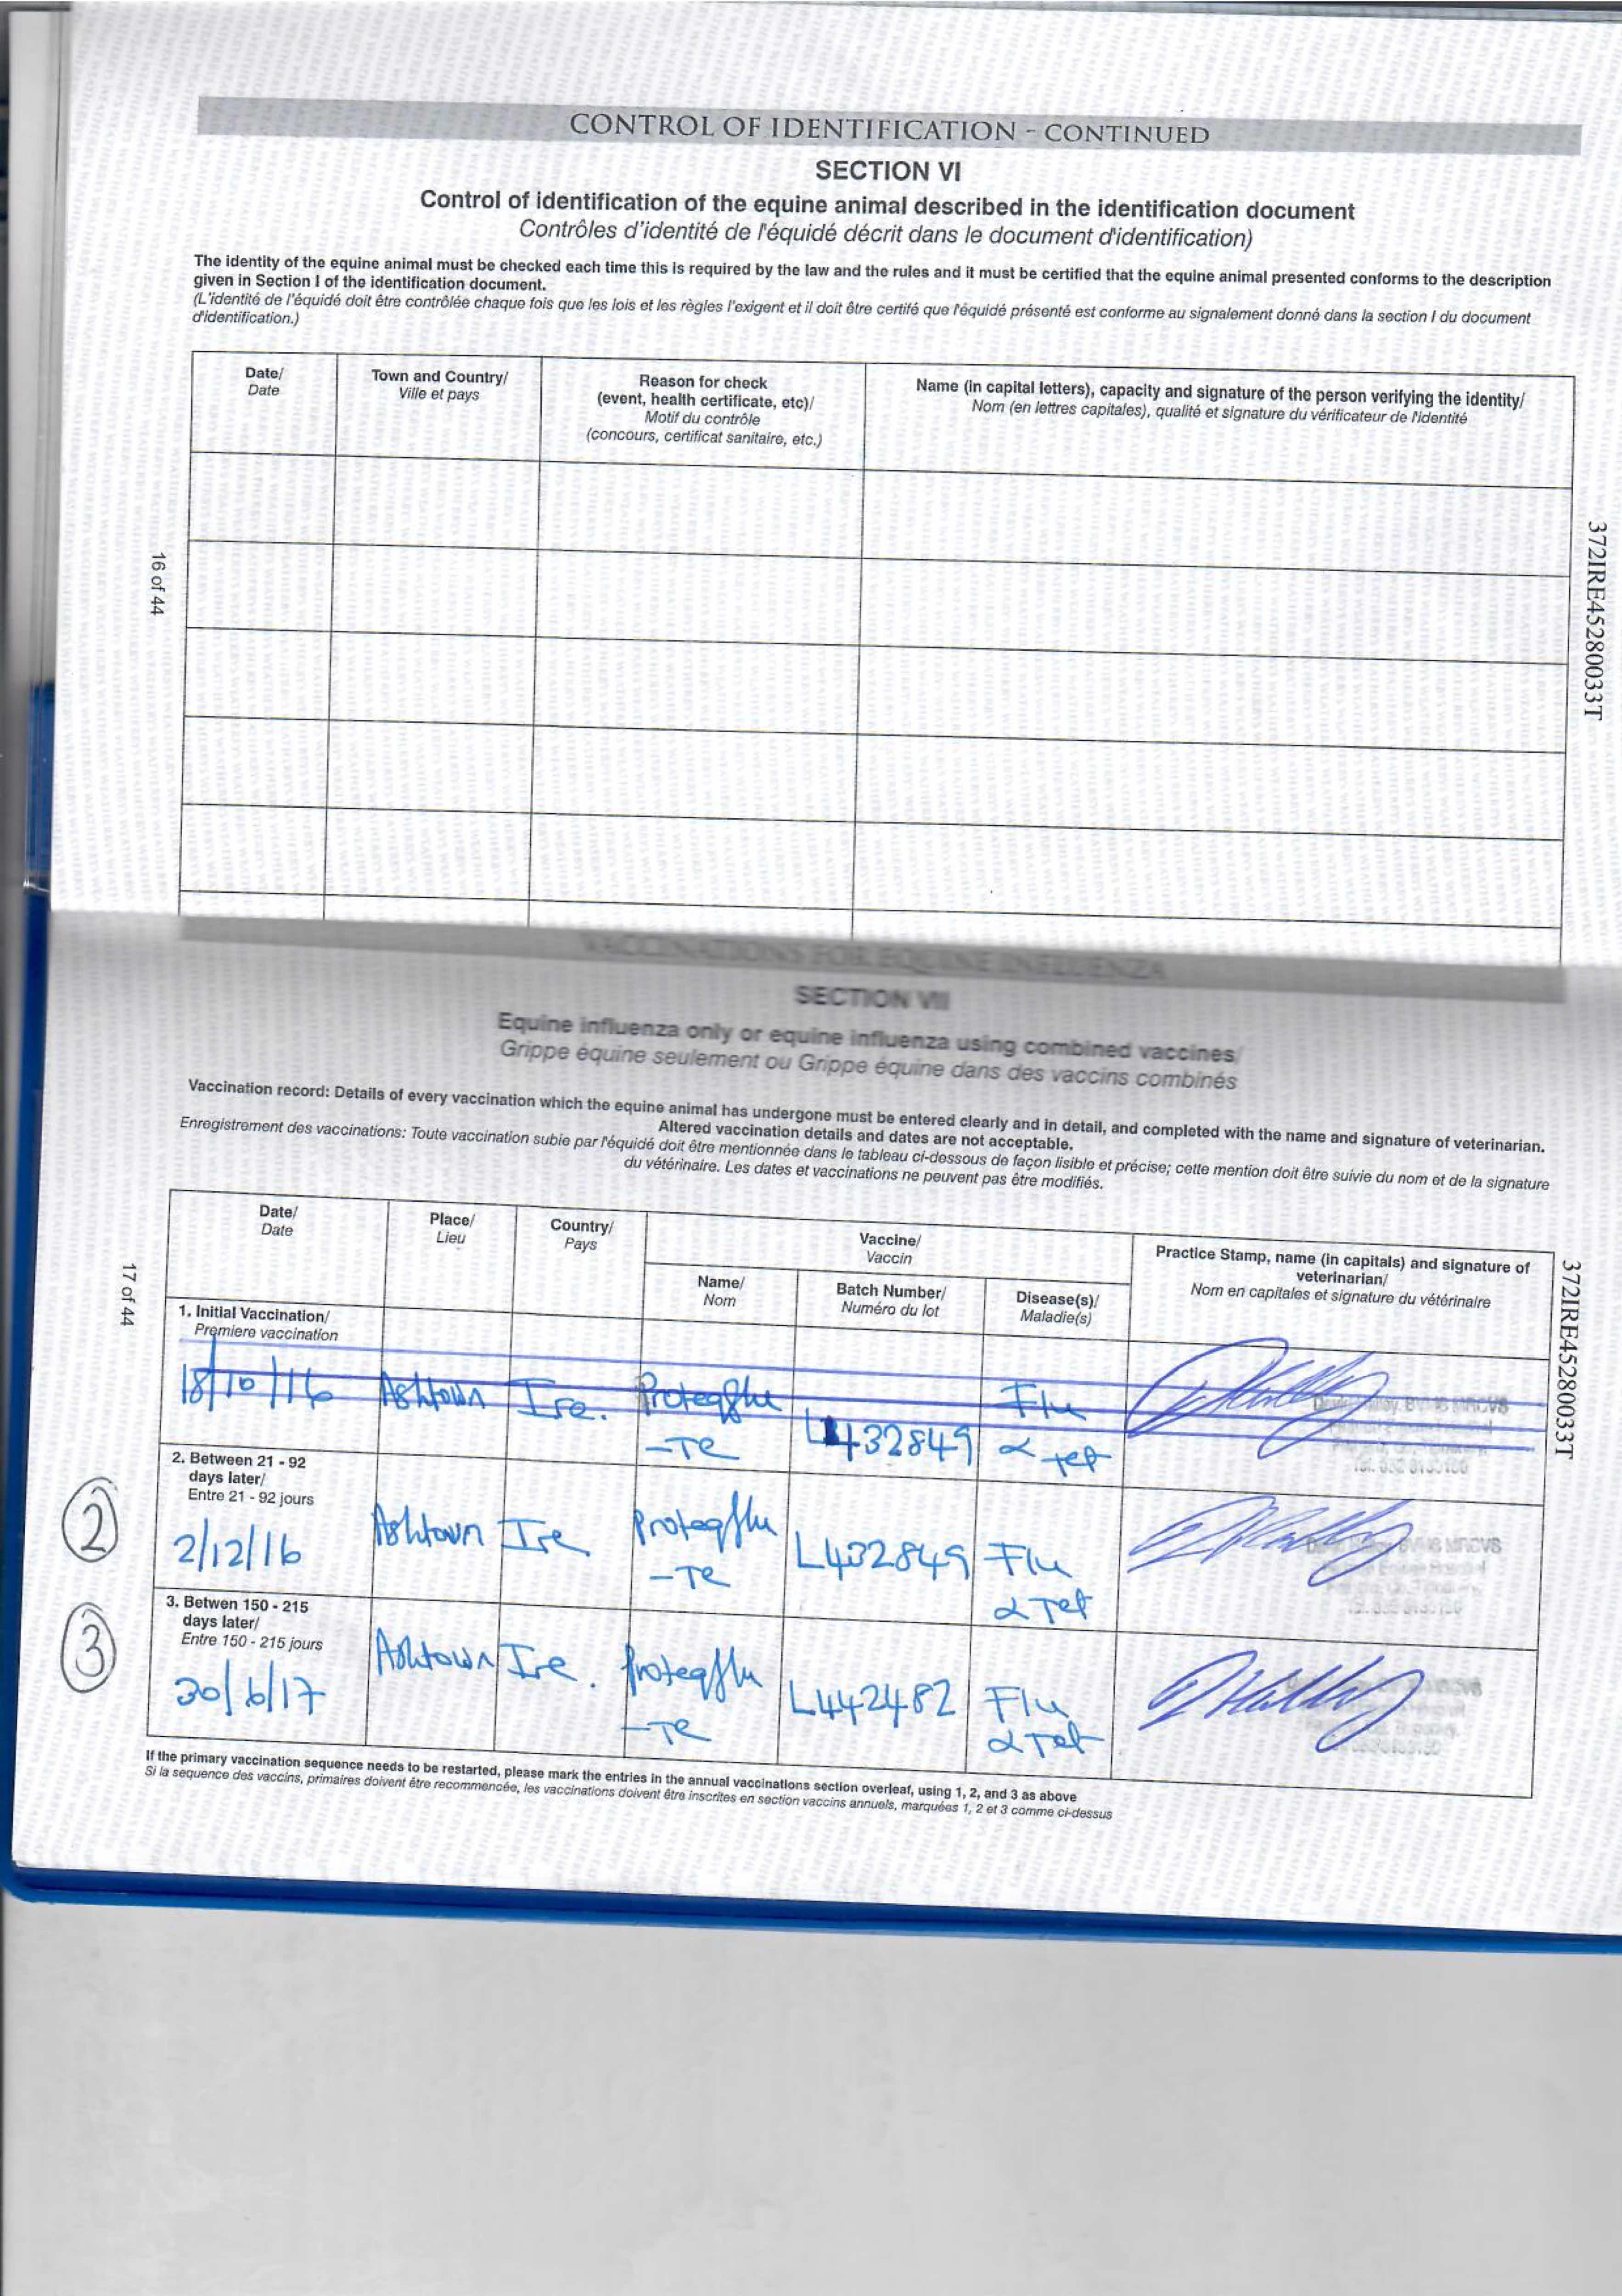 CONTROL OF IDENTIFICATION - CONTINUED
SECTION VI
Control of identification of the equine animal described in the identification document
Contrôles d'identité de l'équidé décrit dans le document d'identification)
The identity of the equine animal must be checked each time this is required by the law and the rules and it must be certified that the equine animal presented conforms to the description
given in Section I of the identification document.
(L'identité de l'équidé doit être contrôlée chaque fois que les lois et les règles l'exigent et il doit être certifé que l'équidé présenté est conforme au signalement donné dans la section I du document
d'identification.)
Date/
Date
Town and Country/
Ville et pays
Reason for check
(event, health certificate, etc)/
Motif du contrôle
(concours, certificat sanitaire, etc.)
Name (in capital letters), capacity and signature of the person verifying the identity/
Nom (en lettres capitales), qualité et signature du vérificateur de l'identité
16 of 44
372IRE45280033T
VACCINATIONS FOR EQUINE INFLUENZA
SECTION VII
Equine influenza only or equine influenza using combined vaccines/
Grippe équine seulement ou Grippe équine dans des vaccins combinés
Vaccination record: Details of every vaccination which the equine animal has undergone must be entered clearly and in detail, and completed with the name and signature of veterinarian.
Altered vaccination details and dates are not acceptable.
Enregistrement des vaccinations: Toute vaccination subie par l'équidé doit être mentionnée dans le tableau ci-dessous de façon lisible et précise; cette mention doit être suivie du nom et de la signature
du vétérinaire. Les dates et vaccinations ne peuvent pas être modifiés.
Date/
Date
Place/
Lieu
Country/
Pays
Vaccine/
Vaccin
Name/
Nom
Batch Number/
Numéro du lot
Disease(s)/
Maladie(s)
Practice Stamp, name (in capitals) and signature of
veterinarian/
Nom en capitales et signature du vétérinaire
17 of 44
372IRE45280033T
1. Initial Vaccination/
Premiere vaccination
18/10/16 Ashtown Ire. Proteqflu
-Te
L432849
Flu
& Tet
BVMS MRCVS
2. Between 21 - 92
days later/
Entre 21 - 92 jours
2
2/12/16 Ashtown Ire Proteqflu
-Te
L432849
Flu
& Tet
BVMS MRCVS
3. Betwen 150 - 215
days later/
Entre 150 - 215 jours
3
30/6/17 Ashtown Ire. Proteqflu
-Te
L442482
Flu
& Tet
If the primary vaccination sequence needs to be restarted, please mark the entries in the annual vaccinations section overleaf, using 1, 2, and 3 as above
Si la sequence des vaccins, primaires doivent être recommencée, les vaccinations doivent être inscrites en section vaccins annuels, marquées 1, 2 et 3 comme ci-dessus